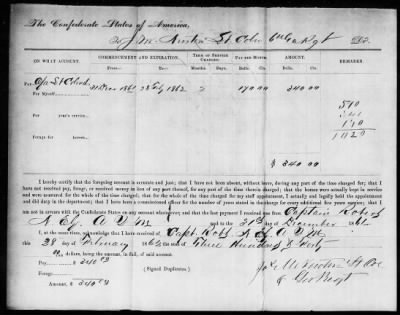 The Confederate States of America,
To J. M. Newton Lt Colo 6th Ga Regt
ON WHAT ACCOUNT. COMMENCEMENT AND EXPIRATION. TIME OF SERVICE CHARGED. PAY PER MONTH. AMOUNT. REMARKS
From— To— Months. Days.
Pay
For Myself
31 Dec 1861 28 Feby 1862 2 170 00 340 00
For year's service
Forage for horses
510
1020
$ 340 00
I hereby certify that the foregoing account is accurate and just; that I have not been absent, without leave, during any part of the time charged for; that I
have not received pay, forage, or received money in lieu of any part thereof, for any part of the time therein charged; that the horses were actually kept in service
and were mounted for the whole of the time charged; that for the whole of the time charged for my staff appointment, I actually and legally held the appointment
and did duty in the department; that I have been a commissioned officer for the number of years stated in the charge for every additional five years service; that I
am not in arrears with the Confederate States on any account whatsoever; and that the last payment I received was from Captain
A. Q. M. and to the 31st day of December 1861
I, at the same time, acknowledge that I have received of Capt. A Q M
this 28 day of February 1862 the sum of Three Hundred & Forty
dollars, being the amount, in full, of said account.
Pay, $ 340 00
Forage,
Amount, $ 340 00
(Signed Duplicates.)
Jas M Newton Lt Col
6 Geo Regt